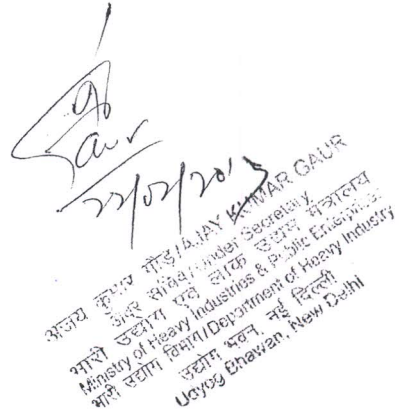 Gaur
22/02/2013
अजय कुमार गौड़/AJAY KUMAR GAUR
अवर सचिव/Under Secretary
भारी उद्योग एवं लोक उद्यम मंत्रालय
Ministry of Heavy Industries & Public Enterprises
भारी उद्योग विभाग/Department of Heavy Industry
उद्योग भवन, नई दिल्ली
Udyog Bhawan, New Delhi